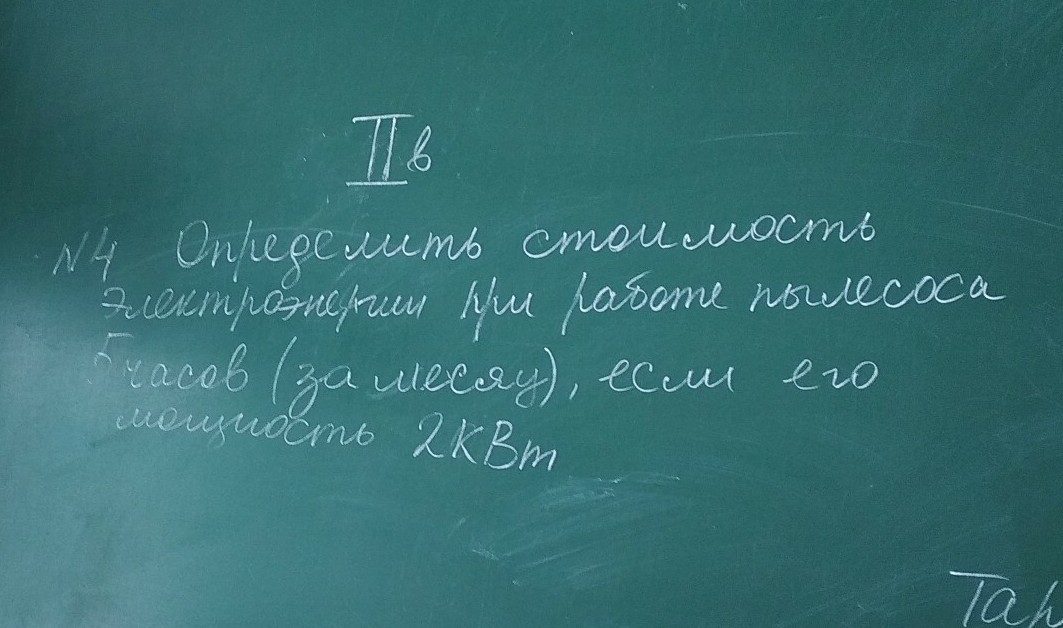 II в
N4 Определить стоимость
электроэнергии при работе пылесоса
5 часов (за месяц), если его
мощность 2кВт
Тар